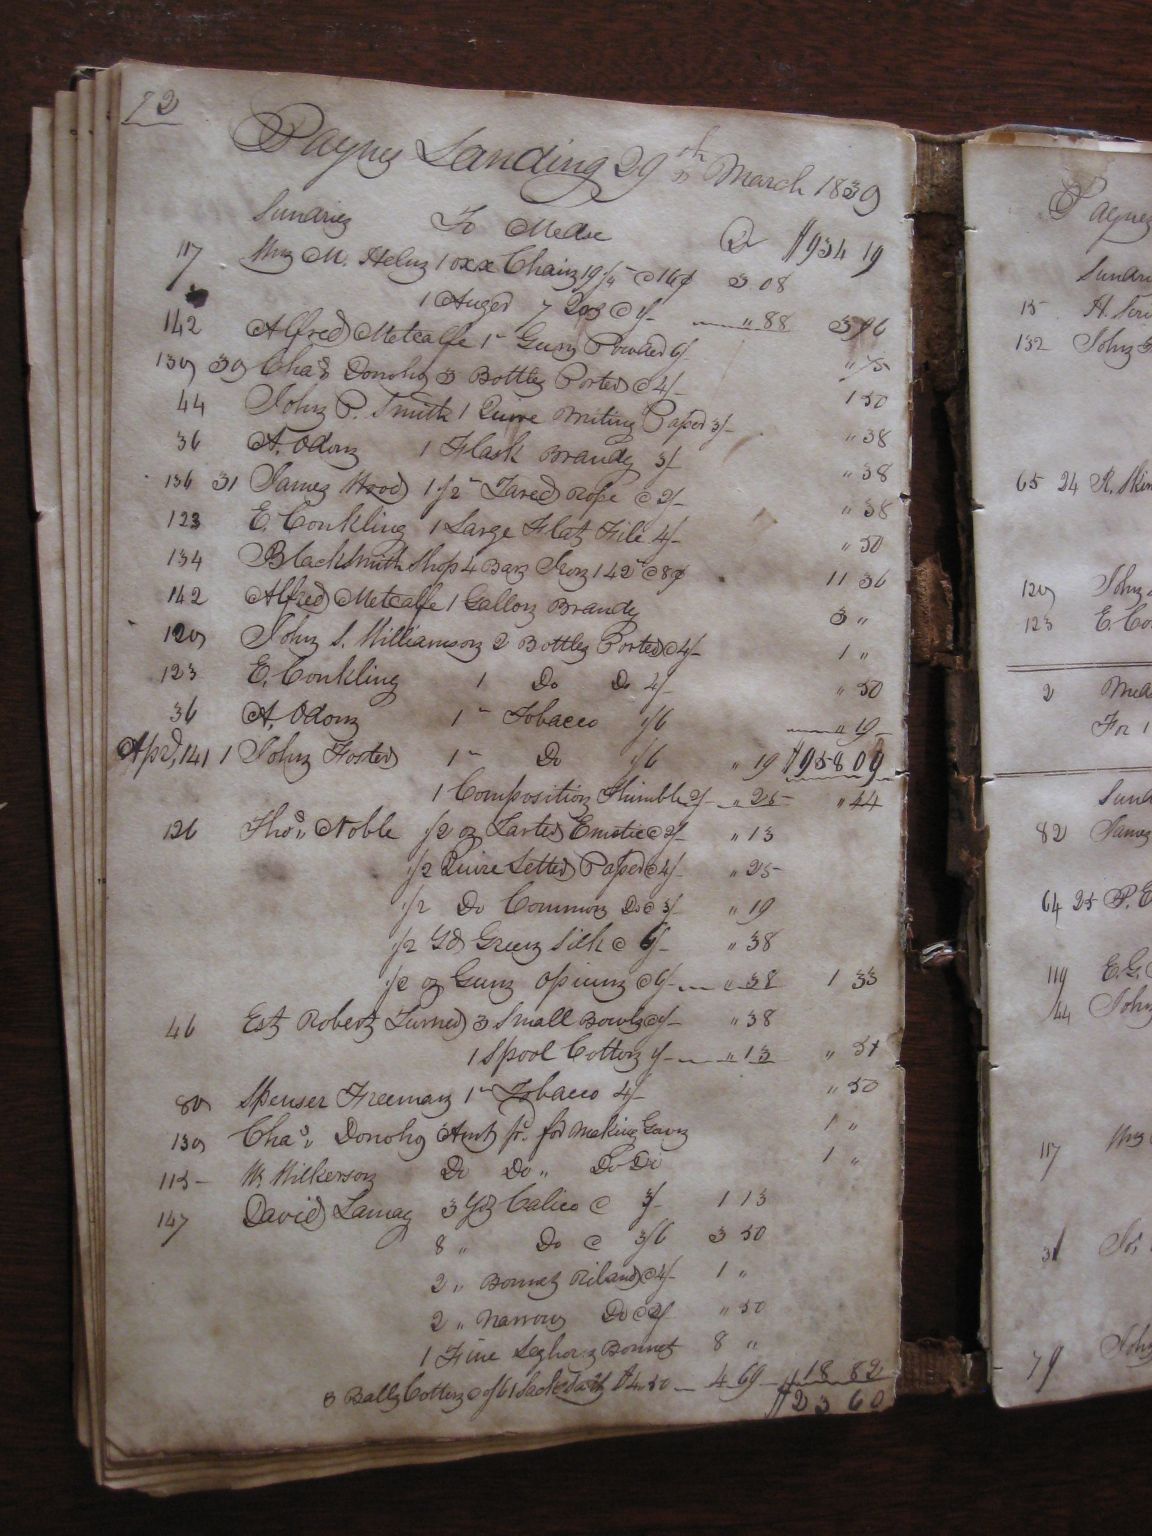 92
Paynes Landing 29th March 1839
Sundries To Mdse Dr $934 19
117 Mrs M. Helms 1 oxx Chain 19¼ @ 16¢ 3 08
1 Auger 7 Qrs @ 1/- " 88 3 96
142 Alfred Metcalfe 1 Gunn Powder 6/- " 75
139 39 Chas Donoho 3 Bottles Porter @ 4/- 1 50
44 John P. Smith 1 Quire Writing Paper 3/- " 38
36 A. Odom 1 Flask Brandy 3/- " 38
136 31 James Hood 1½ Tared Rope @ 2/- " 38
123 E. Conkling 1 Large Flat File 4/- " 50
134 Blacksmith Shop 4 Bars Iron 142 @ 8¢ 11 36
142 Alfred Metcalfe 1 Gallon Brandy 3 "
129 John S. Williamson 2 Bottles Porter @ 4/- 1 "
123 E. Conkling 1 Do Do 4/- " 50
36 A. Odom 1 Tobacco 1/6 " 19
Apr, 141 1 John Foster 1 Do 1/6 " 19 $958 09
1 Composition Thimble 2/- " 25 " 44
126 Thos Noble ½ oz Tarter Emetic @ 2/- " 13
½ Quire Letter Paper @ 4/- " 25
½ Do Common Do @ 3/- " 19
½ Yd Green Silk @ 6/- " 38
½ oz Gum Opium @ 6/- " 38 1 33
46 Est Robert Turner 3 Small Bowls @ 1/- " 38
1 Spool Cotton 1/- " 13 " 51
80 Spenser Freeman 1 Tobacco 4/- " 50
139 Chas Donoho Amt pr. for Making Gown 1 "
115 W. Wilkerson Do Do " Do Do 1 "
147 David Lamay 3 Yds Calico @ 3/- 1 13
8 " Do @ 3/6 3 50
2 " Bonnet Riband @ 4/- 1 "
2 " Narrow Do @ 2/- " 50
1 Fine Leghorn Bonnet 8 "
3 Balls Cotton @ /6 1 Sack Salt $4.50 4 69 $18 82
$23 60
Paynes
Sundri
15
132 John
65 24 R. Skin
129 John
123 E. Co
2
For 1
Sund
82 James
64 25 P. E
119 E. G.
144 John
117 Mrs
31
79 John